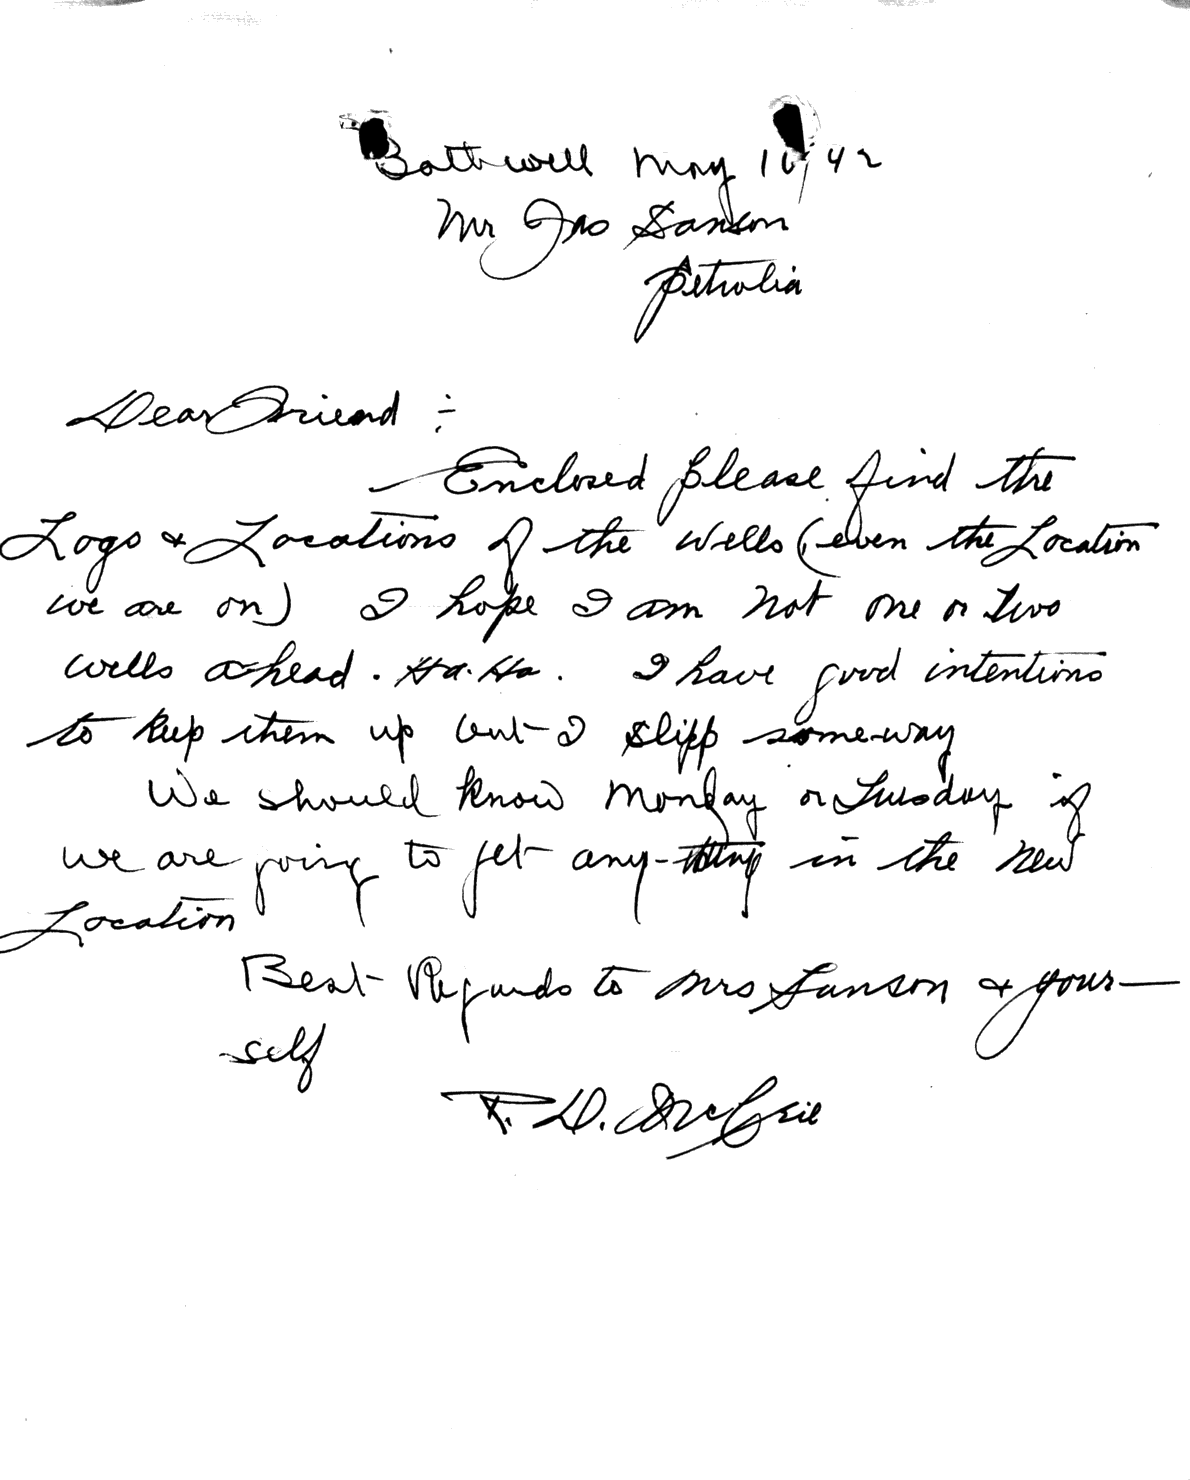 Bothwell May 16/42
Mr Jas Sanson
Petrolia
Dear Friend :-
Enclosed please find the
Logs & Locations of the wells (even the Location
we are on) I hope I am not one or two
wells a-head. Ha. Ha. I have good intentions
to keep them up but I slipp some-way
We should know Monday or Tuesday if
we are going to get any-thing in the new
Location
Best Regards to Mrs Sanson & your-
self
R. D. McCrie